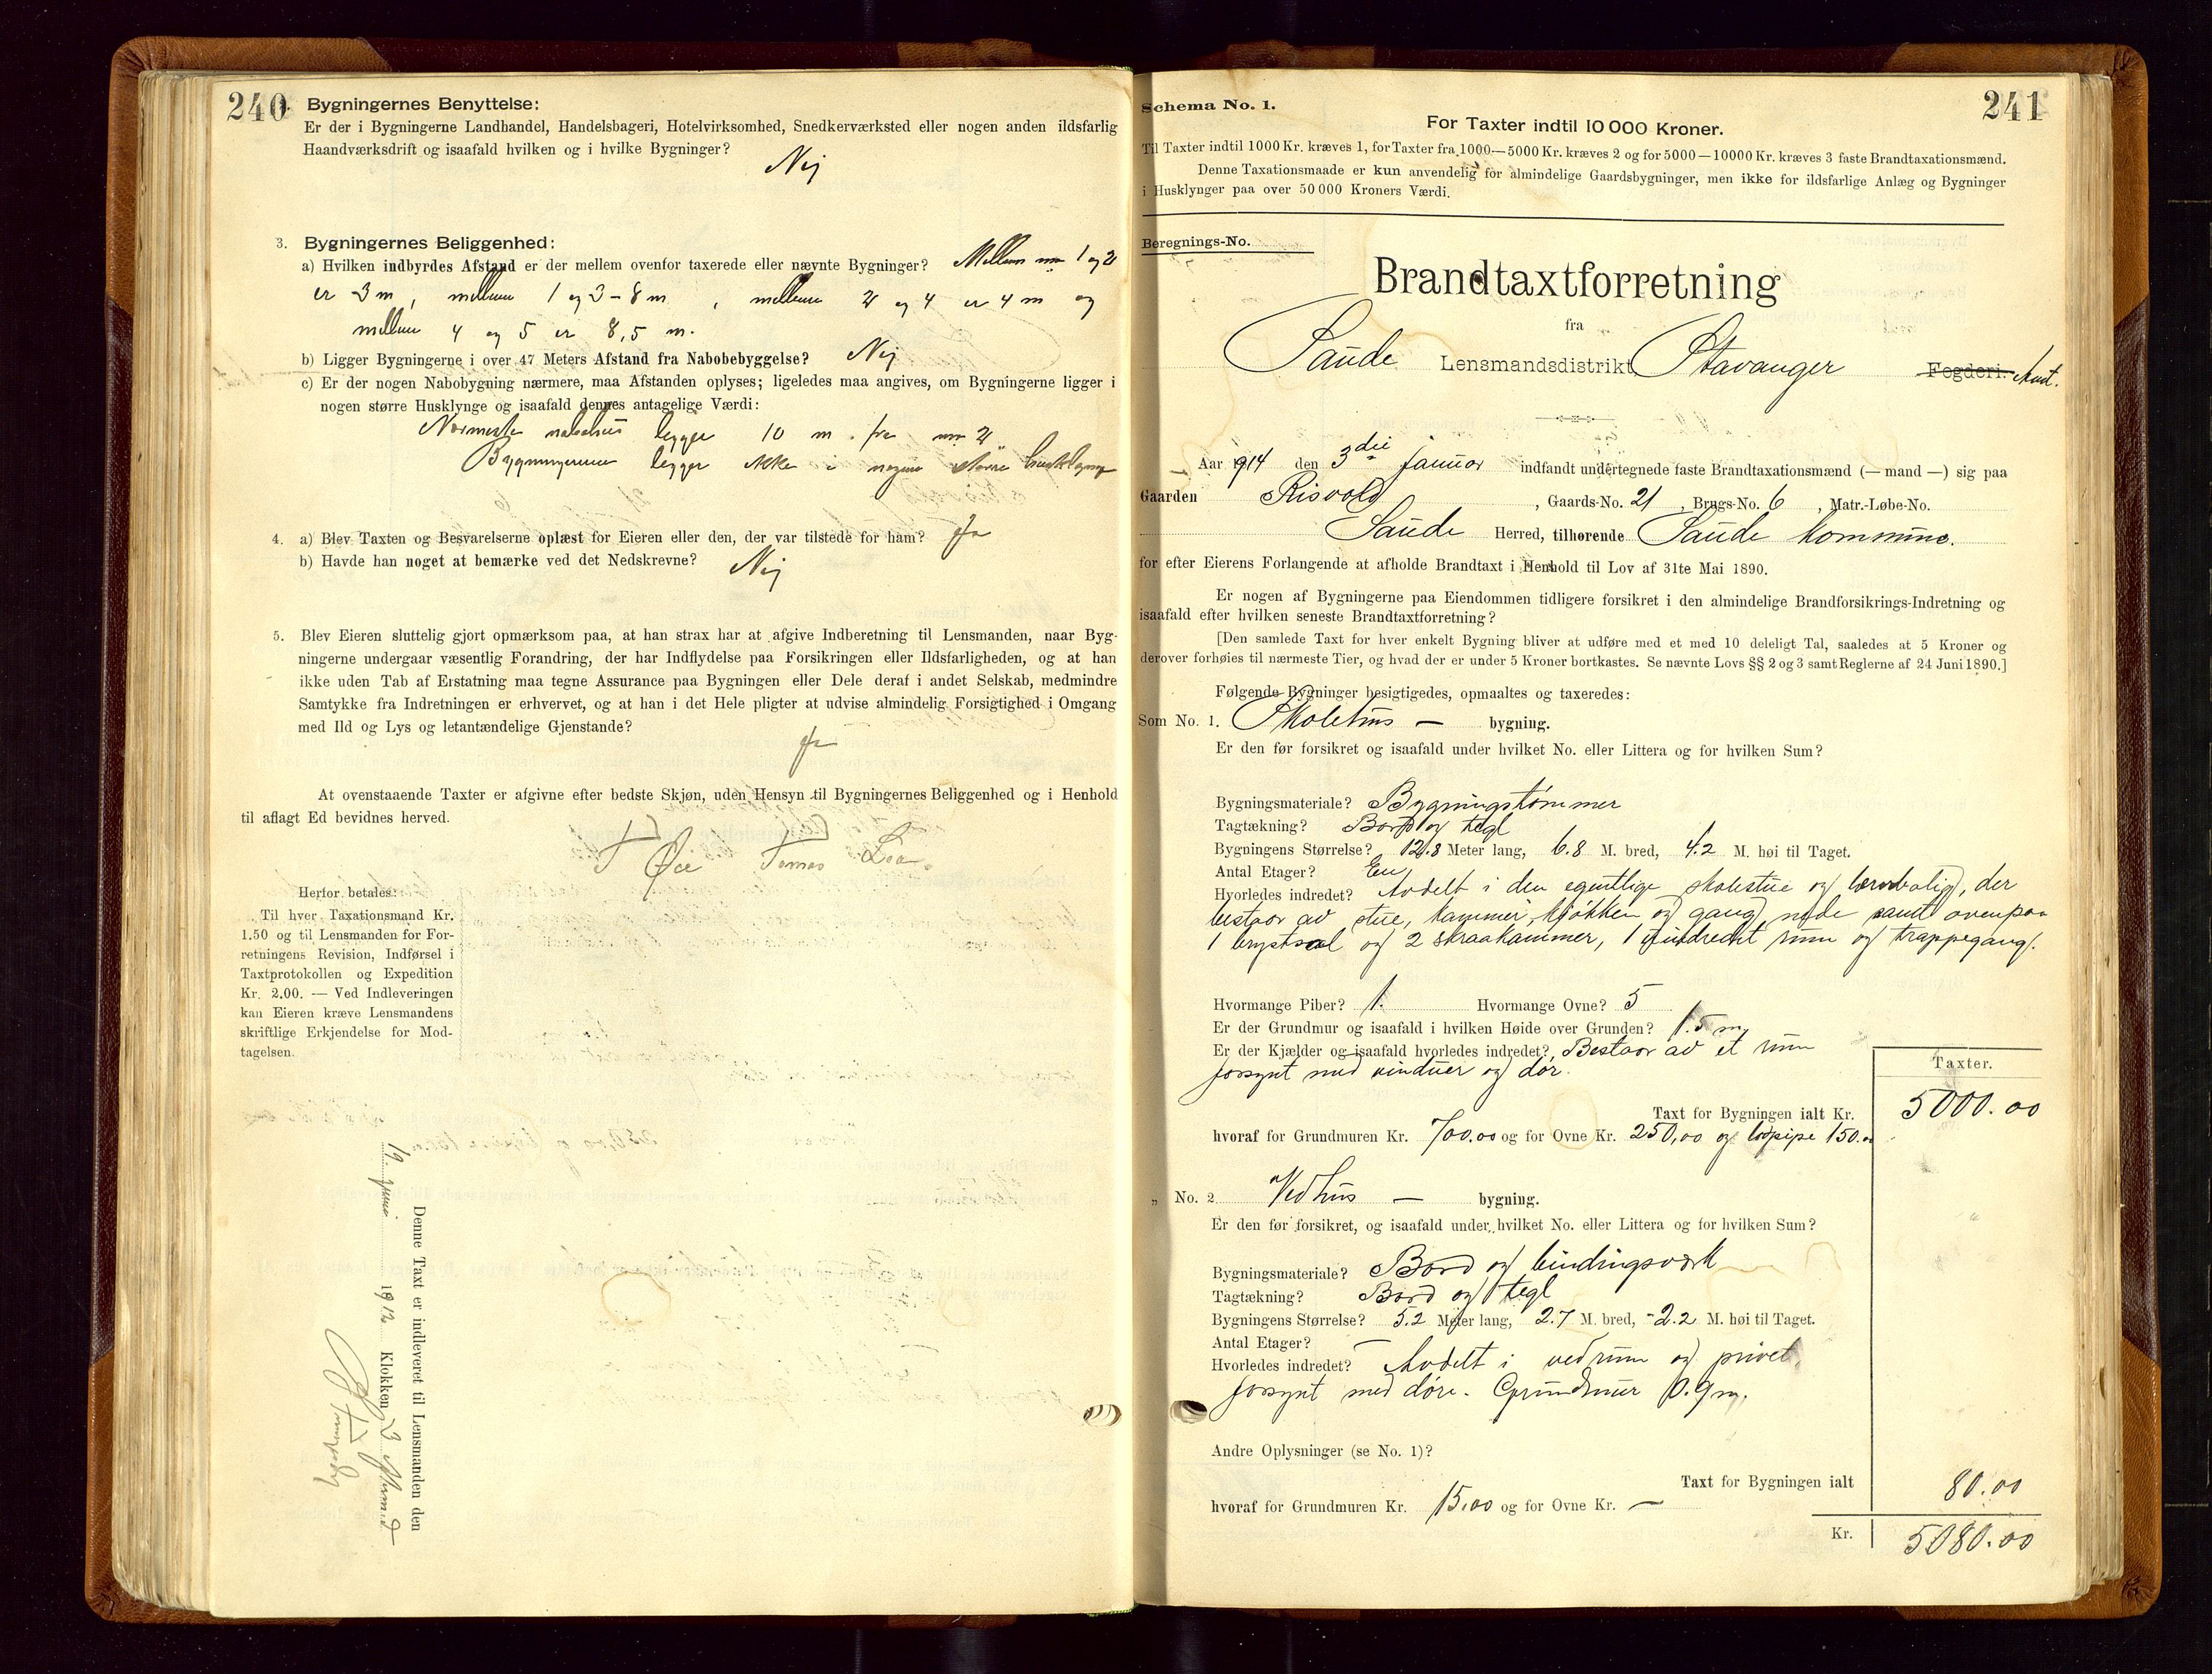 240
Bygningernes Benyttelse:
Er der i Bygningerne Landhandel, Handelsbageri, Hotelvirksomhed, Snedkerværksted eller nogen anden ildsfarlig
Haandværksdrift og isaafald hvilken og i hvilke Bygninger?
Nej
3. Bygningernes Beliggenhed:
a) Hvilken indbyrdes Afstand er der mellem ovenfor taxerede eller nævnte Bygninger? Mellem no 1 og 2
er 3 m, mellem 1 og 3 - 8 m, mellem 2 og 4 er 4 m og
mellem 4 og 5 er 8,5 m.
b) Ligger Bygningerne i over 47 Meters Afstand fra Nabobebyggelse? Nej
c) Er der nogen Nabobygning nærmere, maa Afstanden oplyses; ligeledes maa angives, om Bygningerne ligger i
nogen større Husklynge og isaafald dennes antagelige Værdi:
Nærmeste nabohus ligger 10 m. fra no 2
Bygningerne ligger ikke i nogen større husklynge
4. a) Blev Taxten og Besvarelserne oplæst for Eieren eller den, der var tilstede for ham? Ja
b) Havde han noget at bemærke ved det Nedskrevne? Nej
5. Blev Eieren sluttelig gjort opmærksom paa, at han strax har at afgive Indberetning til Lensmanden, naar Byg-
ningerne undergaar væsentlig Forandring, der har Indflydelse paa Forsikringen eller Ildsfarligheden, og at han
ikke uden Tab af Erstatning maa tegne Assurance paa Bygningen eller Dele deraf i andet Selskab, medmindre
Samtykke fra Indretningen er erhvervet, og at han i det Hele pligter at udvise almindelig Forsigtighed i Omgang
med Ild og Lys og letantændelige Gjenstande?
Ja
At ovenstaaende Taxter er afgivne efter bedste Skjøn, uden Hensyn til Bygningernes Beliggenhed og i Henhold
til aflagt Ed bevidnes herved.
T Øie Tomas Lea
Herfor betales:
Til hver Taxationsmand Kr.
1.50 og til Lensmanden for For-
retningens Revision, Indførsel i
Taxtprotokollen og Expedition
Kr. 2.00. — Ved Indleveringen
kan Eieren kræve Lensmandens
skriftlige Erkjendelse for Mod-
tagelsen.
Denne Taxt er indleveret til Lensmanden den
19. juni 1912 Klokken 3
Schema No. 1.
241
For Taxter indtil 10 000 Kroner.
Til Taxter indtil 1000 Kr. kræves 1, for Taxter fra 1000—5000 Kr. kræves 2 og for 5000—10000 Kr. kræves 3 faste Brandtaxationsmænd.
Denne Taxationsmaade er kun anvendelig for almindelige Gaardsbygninger, men ikke for ildsfarlige Anlæg og Bygninger
i Husklynger paa over 50 000 Kroners Værdi.
Beregnings-No.
Brandtaxtforretning
fra
Saude Lensmandsdistrikt, Stavanger Fogderi. Amt.
Aar 1914 den 3die januar indfandt undertegnede faste Brandtaxationsmænd (— mand —) sig paa
Gaarden Risvold, Gaards-No. 21, Brugs-No. 6, Matr.-Løbe-No.
Saude Herred, tilhørende Saude kommune.
for efter Eierens Forlangende at afholde Brandtaxt i Henhold til Lov af 31te Mai 1890.
Er nogen af Bygningerne paa Eiendommen tidligere forsikret i den almindelige Brandforsikrings-Indretning og
isaafald efter hvilken seneste Brandtaxtforretning?
[Den samlede Taxt for hver enkelt Bygning bliver at udføre med et med 10 deleligt Tal, saaledes at 5 Kroner og
derover forhøies til nærmeste Tier, og hvad der er under 5 Kroner bortkastes. Se nævnte Lovs §§ 2 og 3 samt Reglerne af 24 Juni 1890.]
Følgende Bygninger besigtigedes, opmaaltes og taxeredes:
Som No. 1. Skolehus — bygning.
Er den før forsikret og isaafald under hvilket No. eller Littera og for hvilken Sum?
Bygningsmateriale? Bygningstømmer
Tagtækning? Bord og tegl
Bygningens Størrelse? 12.8 Meter lang, 6.8 M. bred, 4.2 M. høi til Taget.
Antal Etager? En
Hvorledes indredet? Avdelt i den egentlige skolestue og lærerbolig, der
bestaar av stue, kammer, kjøkken og gang nede samt ovenpaa
1 brystsal og 2 skraakammer, 1 uindredet rum og trappegang.
Hvormange Piber? 1. Hvormange Ovne? 5
Er der Grundmur og isaafald i hvilken Høide over Grunden? 1.5 m
Er der Kjælder og isaafald hvorledes indredet? Bestaar av et rum
forsynt med vinduer og dør.
Taxter.
Taxt for Bygningen ialt Kr. 5000.00
hvoraf for Grundmuren Kr. 700.00 og for Ovne Kr. 250,00 og lodpipe 150.00
„ No. 2 Vedhus — bygning.
Er den før forsikret, og isaafald under hvilket No. eller Littera og for hvilken Sum?
Bygningsmateriale? Bord og bindingsverk
Tagtækning? Bord og tegl
Bygningens Størrelse? 5.2 Meter lang, 2.7 M. bred, 2.2 M. høi til Taget.
Antal Etager? —
Hvorledes indredet? Avdelt i vedrum og privet,
forsynt med døre. Grundmur 0.9 m.
Andre Oplysninger (se No. 1)?
Taxt for Bygningen ialt 80.00
hvoraf for Grundmuren Kr. 15,00 og for Ovne Kr. —
Kr. 5080.00